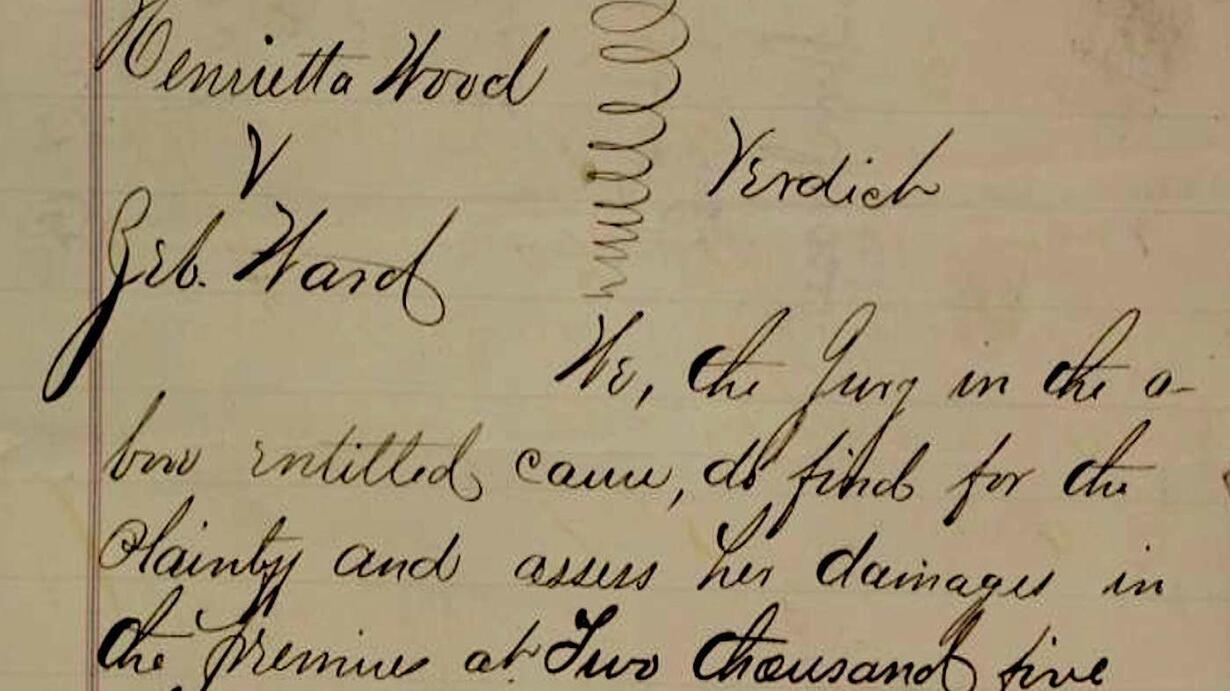 Henrietta Wood
V
Zeb. Ward
Verdict
We, the Jury in the a-
bove entitled cause, do find for the
Plaintiff and assess her damages in
the premises at Two thousand five